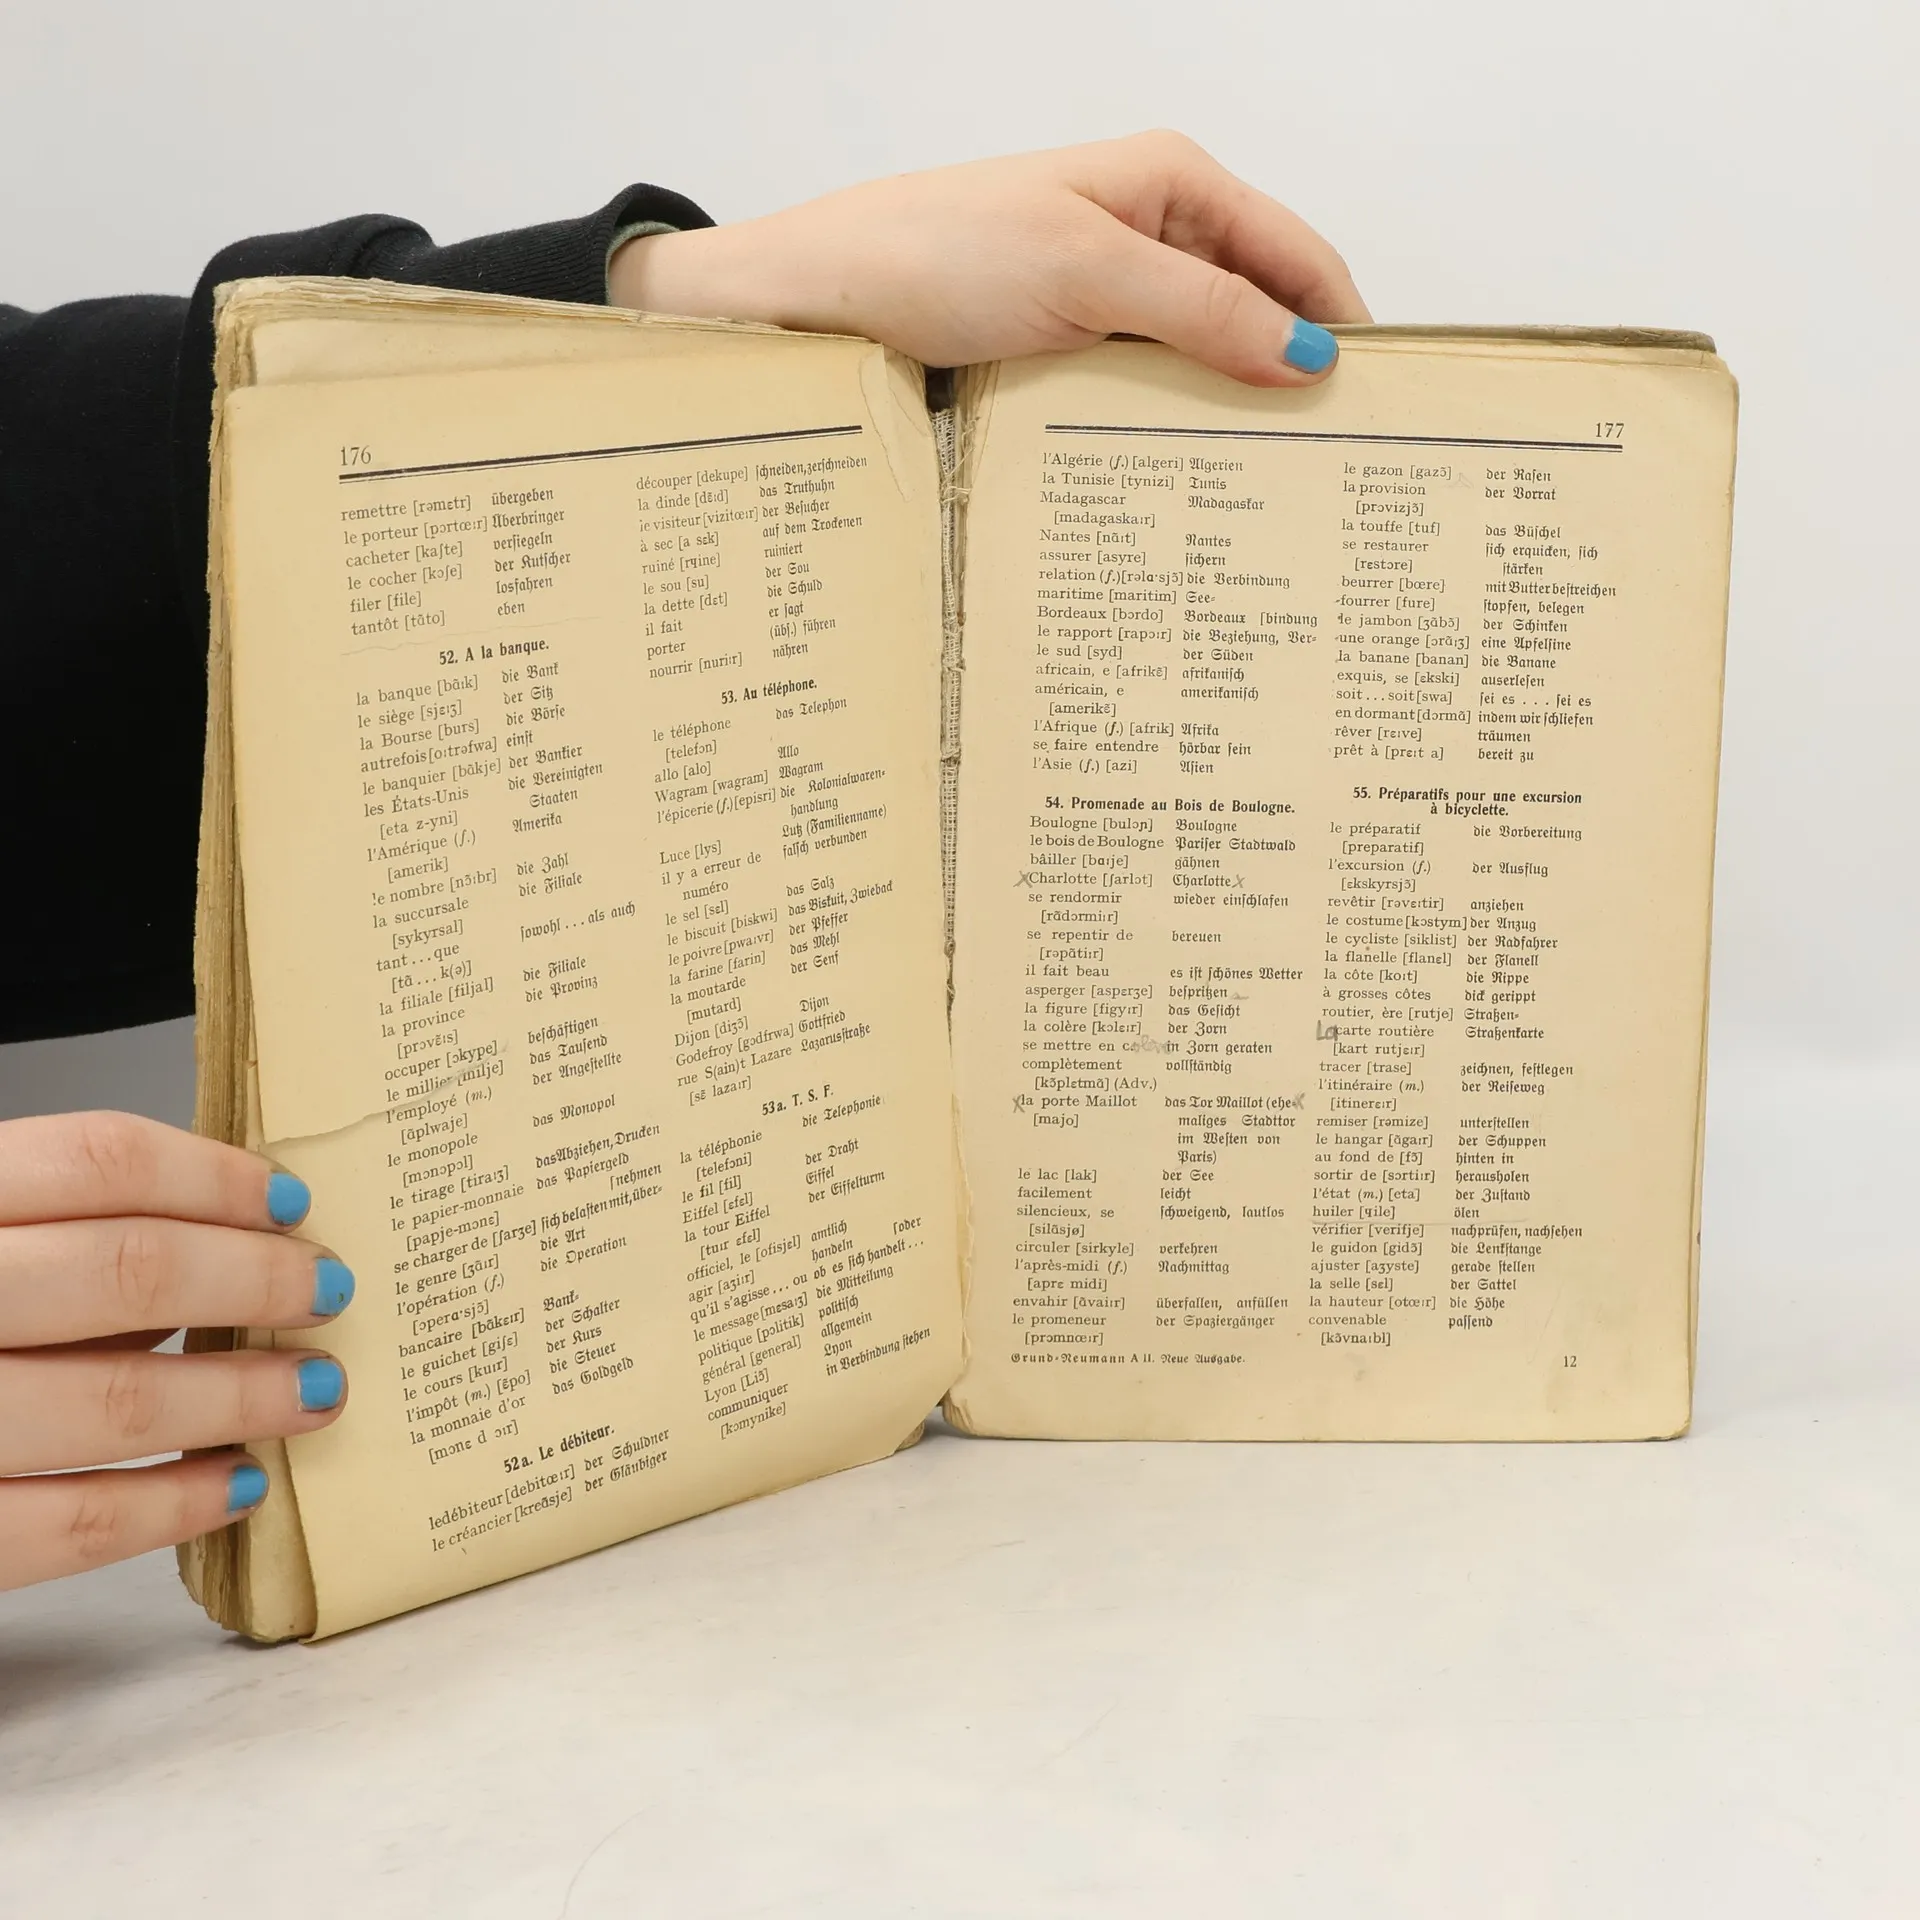 176
remettre [rəmɛtr] übergeben
le porteur [pɔrtœːr] Überbringer
cacheter [kaʃte] versiegeln
le cocher [kɔʃe] der Kutscher
filer [file] losfahren
tantôt [tɑ̃to] eben
52. A la banque.
la banque [bɑ̃ːk] die Bank
le siège [sjɛːʒ] der Sitz
la Bourse [burs] die Börse
autrefois [oːtrəfwa] einst
le banquier [bɑ̃kje] der Bankier
les États-Unis die Vereinigten
[eta z-yni] Staaten
l'Amérique (f.) Amerika
[amerik]
le nombre [nɔ̃ːbr] die Zahl
la succursale die Filiale
[sykyrsal]
tant...que sowohl...als auch
[tɑ̃...k(ə)]
la filiale [filjal] die Filiale
la province die Provinz
[prɔvɛ̃ːs]
occuper [ɔkype] beschäftigen
le millier [milje] das Tausend
l'employé (m.) der Angestellte
[ɑ̃plwaje]
le monopole das Monopol
[mɔnɔpɔl]
le tirage [tiraːʒ] das Abziehen, Drucken
le papier-monnaie das Papiergeld
[papje-mɔnɛ] [nehmen
se charger de [ʃarʒe] sich belasten mit, über-
le genre [ʒɑ̃ːr] die Art
l'opération (f.) die Operation
[ɔpera·sjɔ̃]
bancaire [bɑ̃kɛːr] Bank-
le guichet [giʃɛ] der Schalter
le cours [kuːr] der Kurs
l'impôt (m.) [ɛ̃po] die Steuer
la monnaie d'or das Goldgeld
[mɔnɛ d ɔːr]
52a. Le débiteur.
le débiteur [debitœːr] der Schuldner
le créancier [kreɑ̃sje] der Gläubiger
découper [dekupe] schneiden, zerschneiden
la dinde [dɛ̃ːd] das Truthuhn
le visiteur [vizitœːr] der Besucher
à sec [a sɛk] auf dem Trockenen
ruiné [rɥine] ruiniert
le sou [su] der Sou
la dette [dɛt] die Schuld
il fait er sagt
porter (übs.) führen
nourrir [nuriːr] nähren
53. Au téléphone.
le téléphone das Telephon
[telefɔn]
allo [alo] Allo
Wagram [wagram] Wagram
l'épicerie (f.) [episri] die Kolonialwaren-
handlung
Luce [lys] Lutz (Familienname)
il y a erreur de falsch verbunden
numéro
le sel [sɛl] das Salz
le biscuit [biskwi] das Biskuit, Zwieback
le poivre [pwaːvr] der Pfeffer
la farine [farin] das Mehl
la moutarde der Senf
[mutard]
Dijon [diʒɔ̃] Dijon
Godefroy [gɔdfrwa] Gottfried
rue S(ain)t Lazare Lazarusstraße
[sɛ̃ lazaːr]
53a. T. S. F.
la téléphonie die Telephonie
[telefɔni]
le fil [fil] der Draht
Eiffel [ɛfɛl] Eiffel
la tour Eiffel der Eiffelturm
[tuːr ɛfɛl]
officiel, le [ɔfisjɛl] amtlich
agir [aʒiːr] handeln [oder
qu'il s'agisse...ou ob es sich handelt...
le message [mɛsaːʒ] die Mitteilung
politique [pɔlitik] politisch
général [general] allgemein
Lyon [Liɔ̃] Lyon
communiquer in Verbindung stehen
[kɔmynike]
177
l'Algérie (f.) [algeri] Algerien
la Tunisie [tynizi] Tunis
Madagascar Madagaskar
[madagaskaːr]
Nantes [nɑ̃ːt] Nantes
assurer [asyre] sichern
relation (f.) [rəla·sjɔ̃] die Verbindung
maritime [maritim] See-
Bordeaux [bɔrdo] Bordeaux [bindung
le rapport [rapɔːr] die Beziehung, Ver-
le sud [syd] der Süden
africain, e [afrikɛ̃] afrikanisch
américain, e amerikanisch
[amerikɛ̃]
l'Afrique (f.) [afrik] Afrika
se faire entendre hörbar sein
l'Asie (f.) [azi] Asien
54. Promenade au Bois de Boulogne.
Boulogne [bulɔɲ] Boulogne
le bois de Boulogne Pariser Stadtwald
bâiller [bɑːje] gähnen
x Charlotte [ʃarlɔt] Charlotte x
se rendormir wieder einschlafen
[rɑ̃dɔrmiːr]
se repentir de bereuen
[rəpɑ̃tiːr]
il fait beau es ist schönes Wetter
asperger [aspɛrʒe] bespritzen
la figure [figyːr] das Gesicht
la colère [kɔlɛːr] der Zorn
se mettre en colère in Zorn geraten
complètement vollständig
[kɔ̃plɛtmɑ̃] (Adv.)
x la porte Maillot das Tor Maillot (ehe- x
[majo] maliges Stadttor
im Westen von
Paris)
le lac [lak] der See
facilement leicht
silencieux, se schweigend, lautlos
[silɑ̃sjø]
circuler [sirkyle] verkehren
l'après-midi (f.) Nachmittag
[aprɛ midi]
envahir [ɑ̃vaiːr] überfallen, anfüllen
le promeneur der Spaziergänger
[prɔmnœːr]
le gazon [gazɔ̃] der Rasen
la provision der Vorrat
[prɔvizjɔ̃]
la touffe [tuf] das Büschel
se restaurer sich erquicken, sich
[rɛstɔre] stärken
beurrer [bœre] mit Butter bestreichen
fourrer [fure] stopfen, belegen
le jambon [ʒɑ̃bɔ̃] der Schinken
une orange [ɔrɑ̃ːʒ] eine Apfelsine
la banane [banan] die Banane
exquis, se [ɛkski] auserlesen
soit...soit [swa] sei es...sei es
en dormant [dɔrmɑ̃] indem wir schliefen
rêver [rɛːve] träumen
prêt à [prɛːt a] bereit zu
55. Préparatifs pour une excursion
à bicyclette.
le préparatif die Vorbereitung
[preparatif]
l'excursion (f.) der Ausflug
[ɛkskyrsjɔ̃]
revêtir [rəvɛːtir] anziehen
le costume [kɔstym] der Anzug
le cycliste [siklist] der Radfahrer
la flanelle [flanɛl] der Flanell
la côte [koːt] die Rippe
à grosses côtes dick gerippt
routier, ère [rutje] Straßen-
La carte routière Straßenkarte
[kart rutjɛːr]
tracer [trase] zeichnen, festlegen
l'itinéraire (m.) der Reiseweg
[itinerɛːr]
remiser [rəmize] unterstellen
le hangar [ɑ̃gaːr] der Schuppen
au fond de [fɔ̃] hinten in
sortir de [sɔrtiːr] herausholen
l'état (m.) [eta] der Zustand
huiler [ɥile] ölen
vérifier [verifje] nachprüfen, nachsehen
le guidon [gidɔ̃] die Lenkstange
ajuster [aʒyste] gerade stellen
la selle [sɛl] der Sattel
la hauteur [otœːr] die Höhe
convenable passend
[kɔ̃vnaːbl]
Grund-Neumann A II. Neue Ausgabe. 12